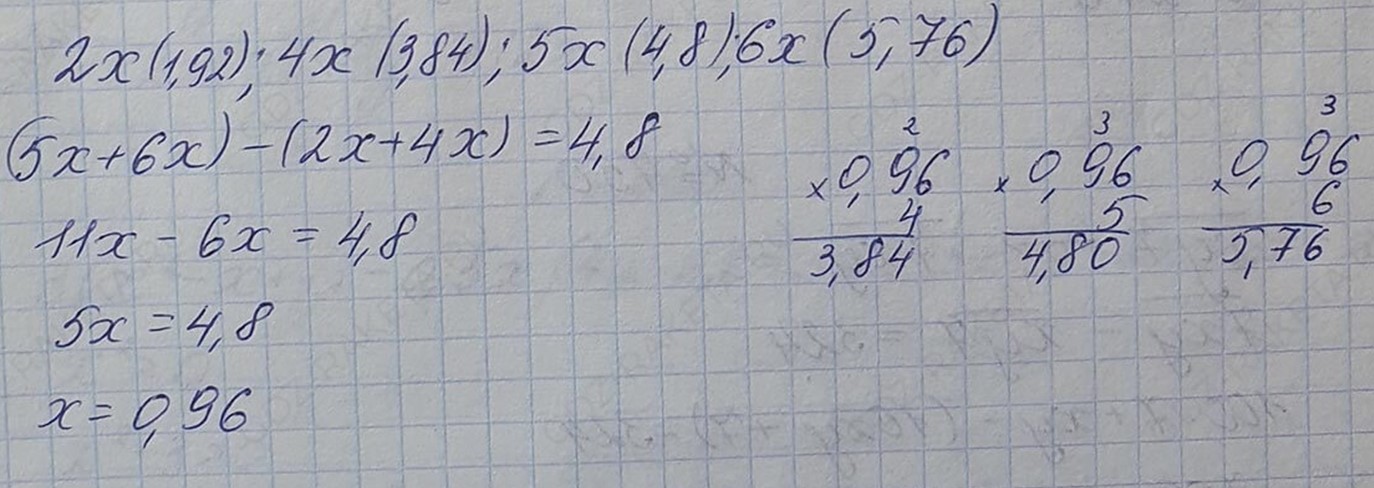 2x (1,92); 4x (3,84); 5x (4,8); 6x (5,76)
(5x + 6x) - (2x + 4x) = 4,8
11x - 6x = 4,8
5x = 4,8
x = 0,96
2
× 0,96
4
3,84
3
× 0,96
5
4,80
3
× 0,96
6
5,76